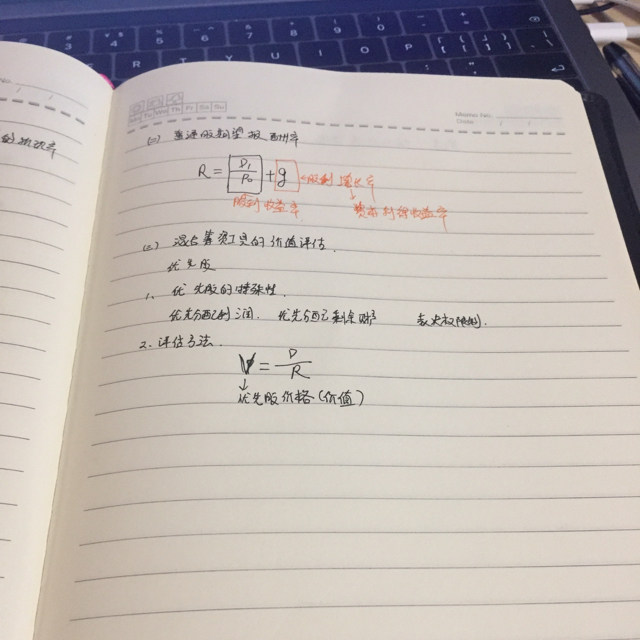 的决策
Memo No.
Date / /
(二) 普通股期望报酬率
R = D₁/P₀ + g → 股利增长率
股利收益率 资本利得收益率
(三) 混合筹资工具的价值评估.
优先股
1. 优先股的特殊性.
优先分配利润. 优先分配剩余财产 表决权限制.
2. 评估方法.
V = D/R
↓
优先股价格(价值)